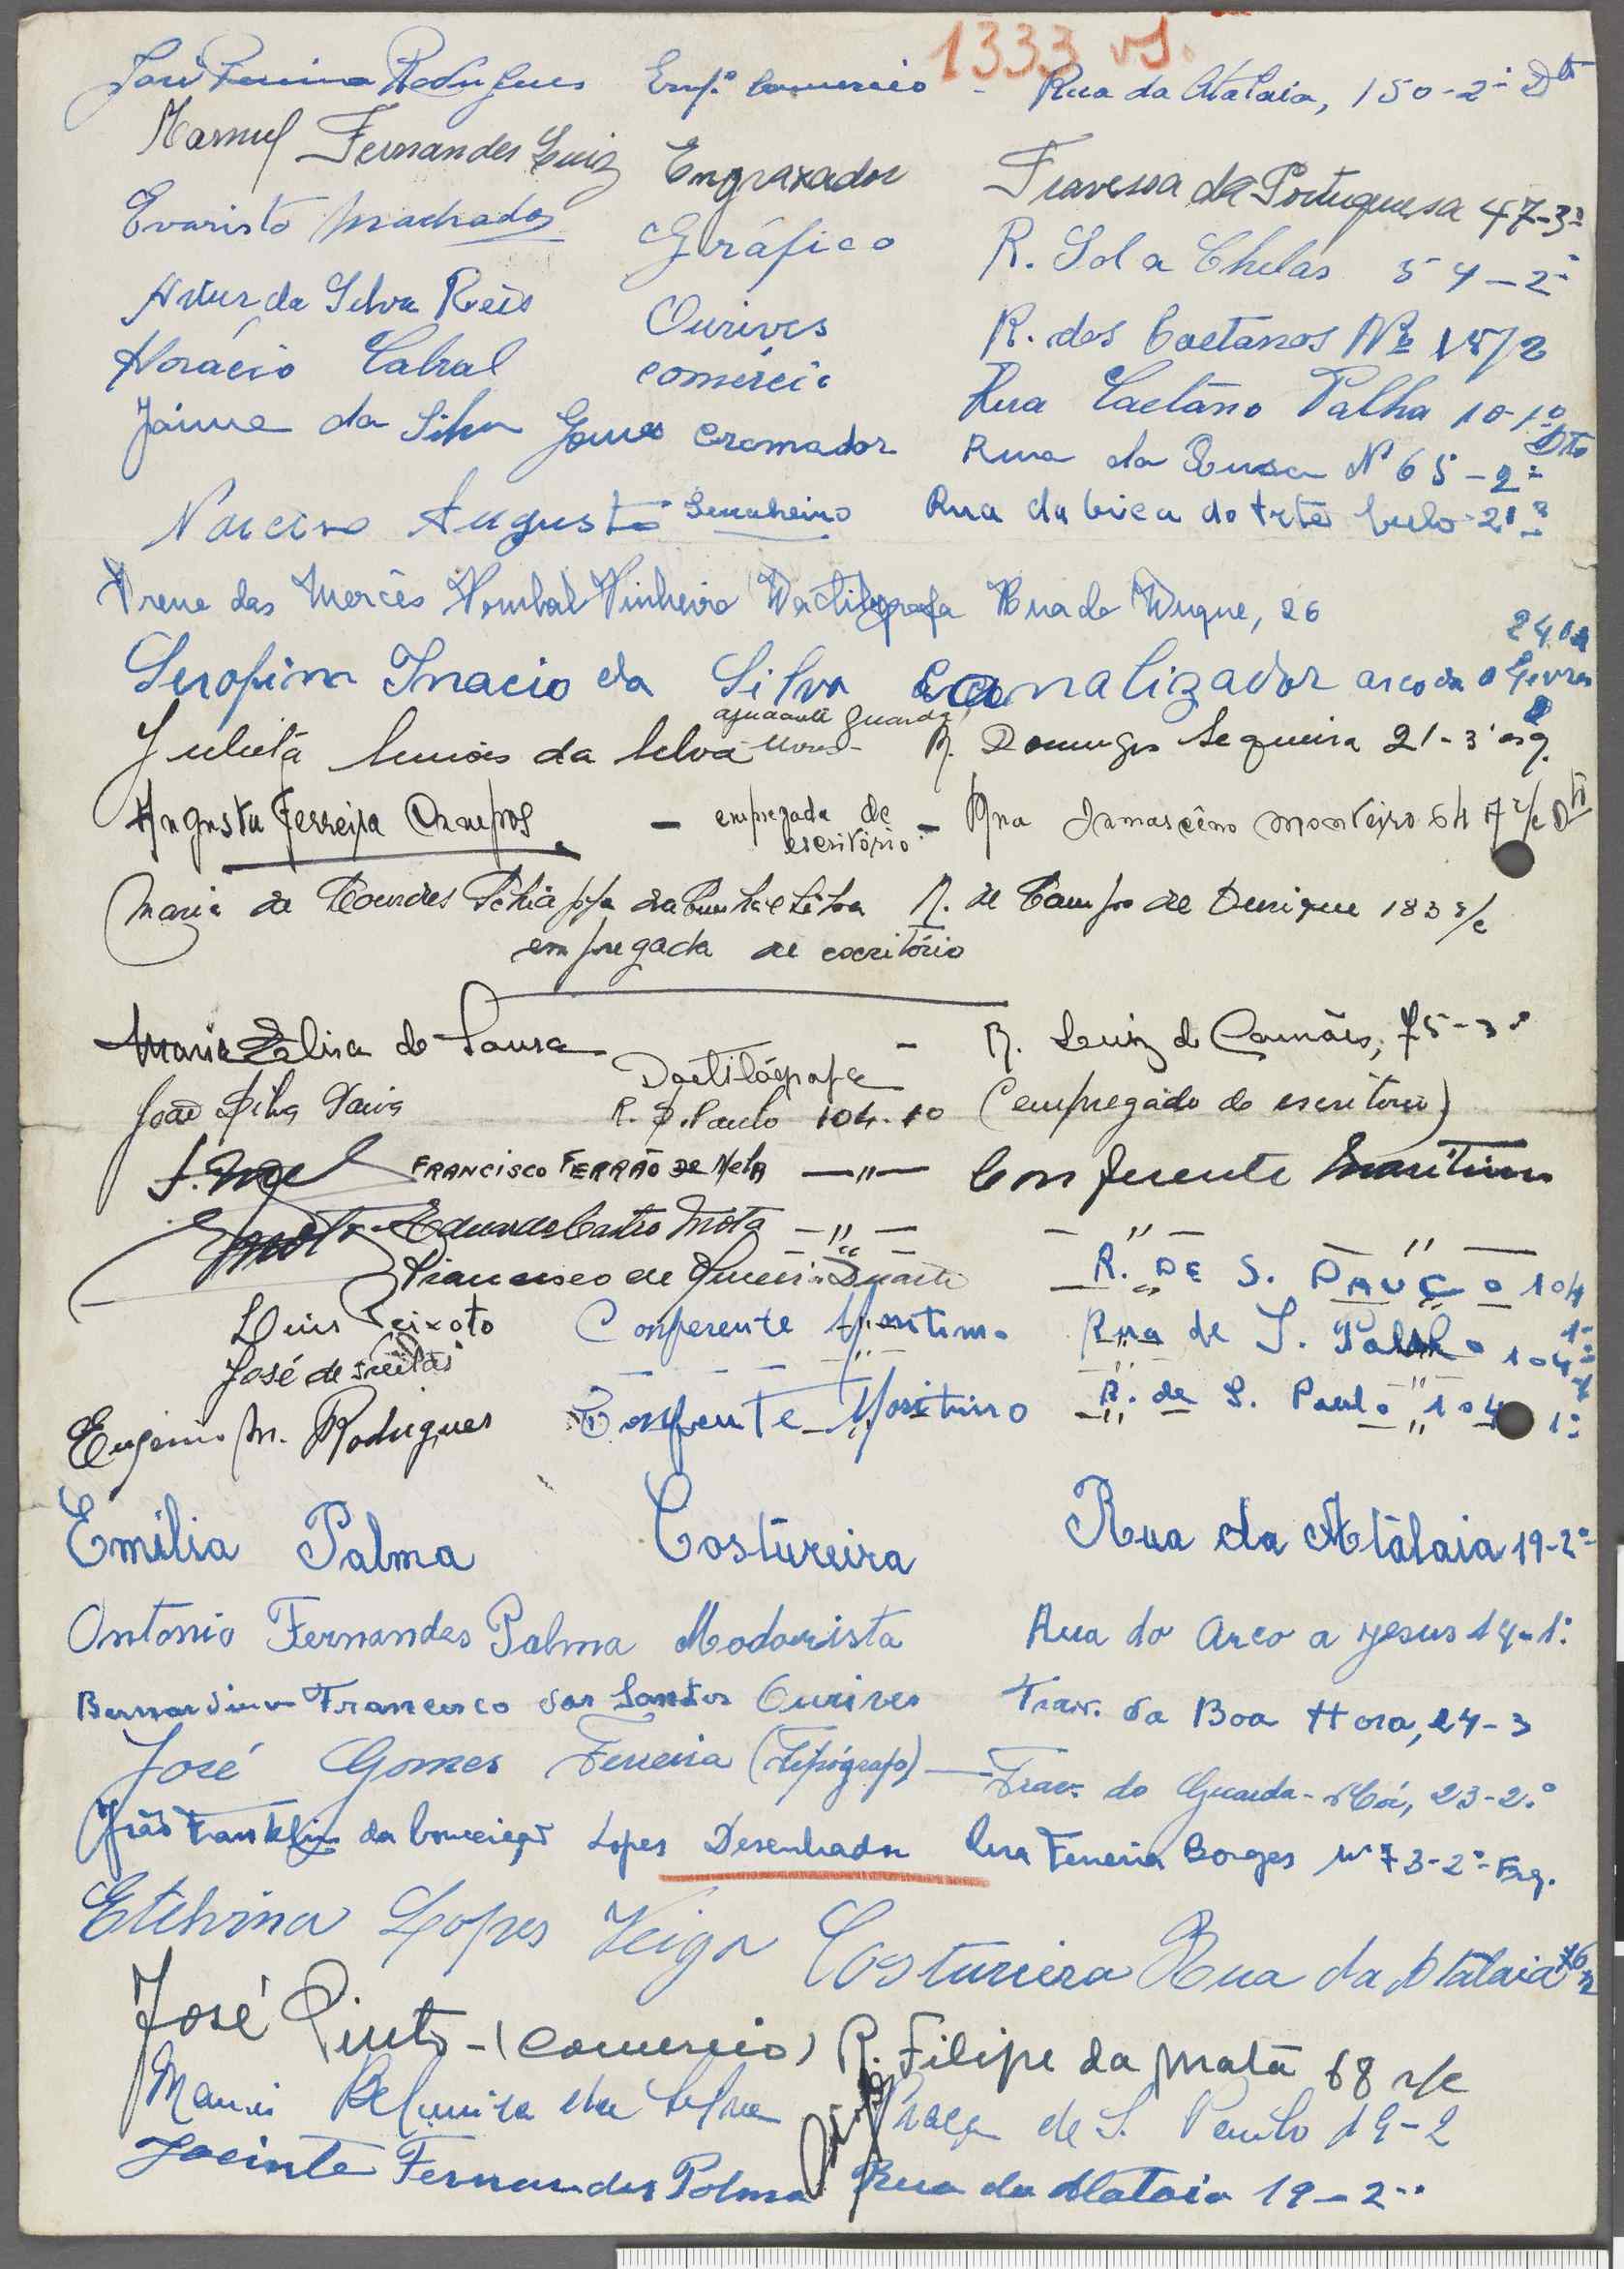 1333 vs.
José Rodrigues Emp.º Comercio - Rua da Atalaia, 150-2º Dtº
Manuel Fernandes Luiz Engraxador Travessa da Portuguesa 47-3º
Evaristo Machado Gráfico R. Sol a Chelas 54-2º
Artur da Silva Reis Ourives R. dos Caetanos Nº 18/2
Horácio Cabral comércio Rua Caetano Palha 10-1º Dto
Jaime da Silva Gomes cromador Rua da Rosa Nº 65-2º
Narciso Augusto Serralheiro Rua da bica do 21
Irene das Mercês Pombal Pinheiro Dactilografa Rua do Duque, 26
Serafim Inacio da Silva canalizador arco da
Julieta Simões da Selva ajudante guarda livros - R. Domingos Sequeira 21-3º esq.
Augusta Ferreira Campos - empregada de escritório - Rua Damascêno Monteiro 64 A r/c Dtº
Maria de Lourdes Schiappa da Cunha e Silva R. de Campo de Ourique 183 r/c
empregada de escritório
Maria Elisa de Sousa - R. Luiz de Camões, 75-3º
Dactilógrafa
João Silva Paiva R. S. Paulo 104-1º (empregado de escritorio)
FRANCISCO FERRÃO DE MELO —"— Conferente Maritimo
Eduardo Castro Mota —"— —"— —"—
Francisco de Duarte —"— R. DE S. PAULO 104
Luis Peixoto Conferente Maritimo Rua de S. Paulo 104 1º
José de Freitas —"— —"— —"—
Eugenio M. Rodrigues Conferente Maritimo R. de S. Paulo 104 1º
Emilia Palma Costureira Rua da Atalaia 19-2º
Antonio Fernandes Palma Rua do Arco a Jesus 14-1º
Bernardino Francisco dos Santos Ourives Trav. da Boa Hora, 24-3
José Gomes Ferreira (Tipógrafo) — Trav. do Guarda-Mór, 23-2.º
João Franklin da Conceição Lopes Desenhador Rua Ferreira Borges nº 73-2º-Esq.
Etelvina Lopes Veiga Costureira Rua da Atalaia
José Pinto - (comercio) R. Filipe da Mata 68 r/c
Maria da Silva Praça de S. Paulo 19-2
Jacinto Fernandes Palma Rua da Atalaia 19-2º